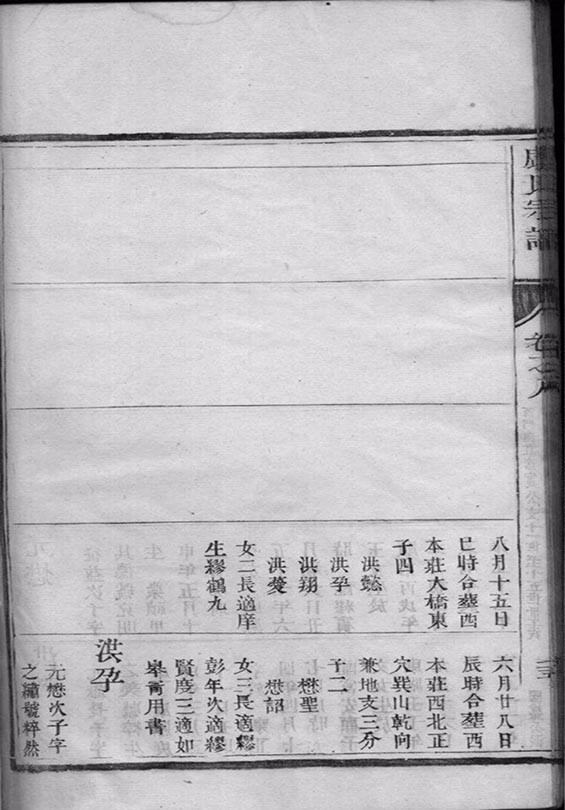 氏宗譜
卷之八
八月十五日
巳時合塟西
本莊大橋東
子四
洪懿
洪孕
洪翔
洪夔
女二長適庠
生繆鶴九
六月廿八日
辰時合塟西
本莊西北正
穴巽山乾向
兼地支三分
子二
懋聖
懋韶
女三長適繆
彭年次適繆
賢度三適如
皋用書
洪孕
元懋次子字
之繡號粹然